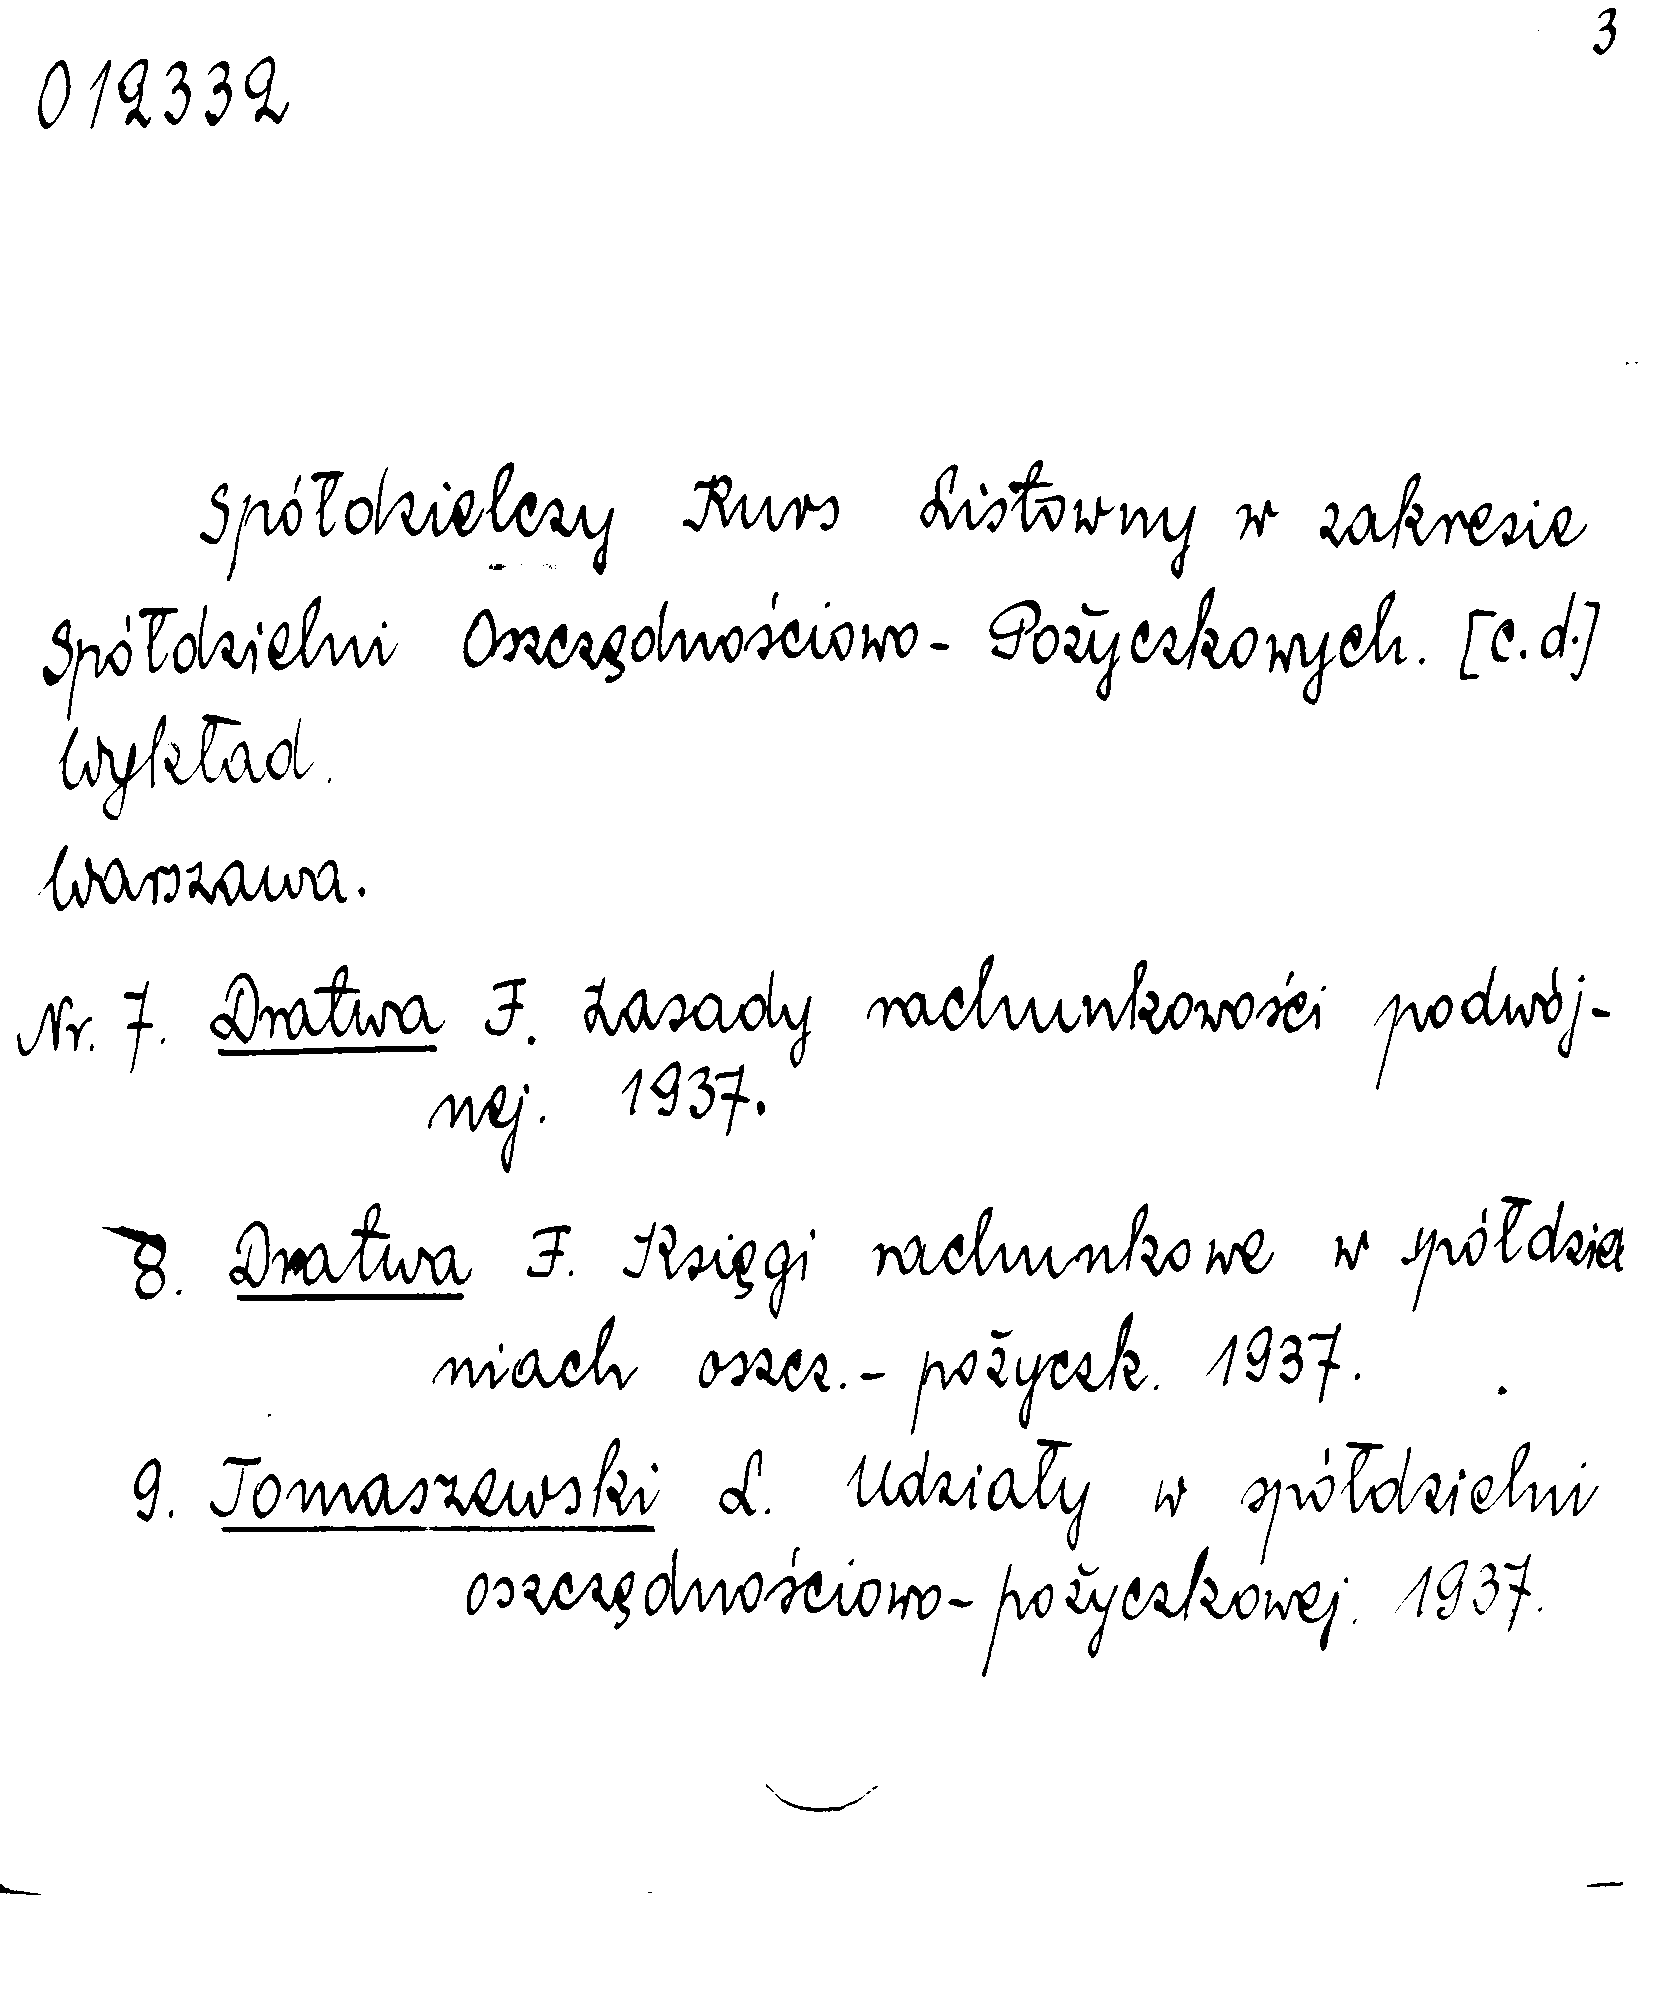 3
012332
Spółdzielczy Kurs Listowny w zakresie
Spółdzielni Oszczędnościowo - Pożyczkowych. [c.d.]
Wykład.
Warszawa.
Nr. 7. Dratwa F. Zasady rachunkowości podwój-
nej. 1937.
8. Dratwa F. Księgi rachunkowe w spółdzie
niach oszcz. - pożyczk. 1937.
9. Tomaszewski L. Udziały w spółdzielni
oszczędnościowo - pożyczkowej. 1937.